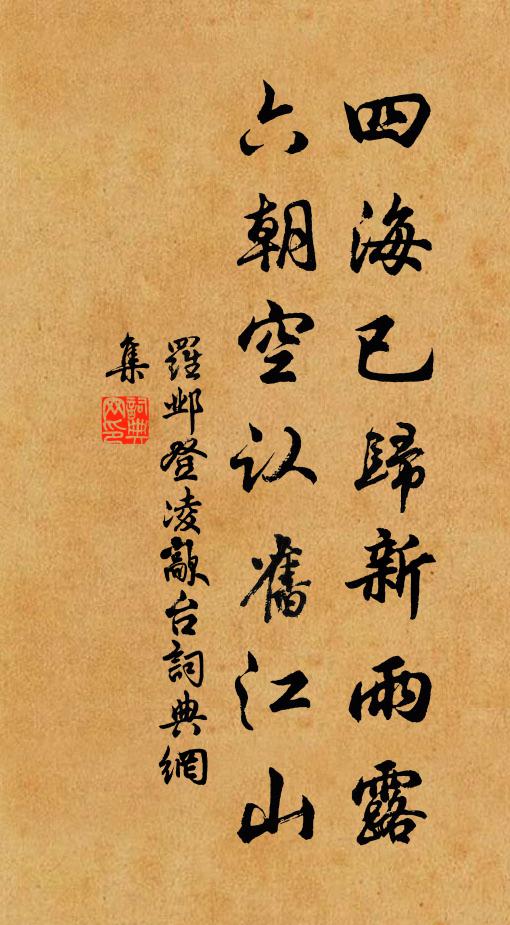 四海已歸新雨露
六朝空认舊江山
羅邺登凌歊台詞典網
集
詞典網印